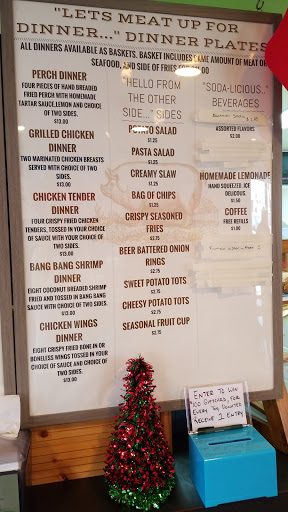 "LETS MEAT UP FOR
DINNER..." DINNER PLATES
ALL DINNERS AVAILABLE AS BASKETS. BASKET INCLUDES SAME AMOUNT OF MEAT OR
SEAFOOD, AND SIDE OF FRIES FOR
PERCH DINNER
FOUR PIECES OF HAND BREADED
FRIED PERCH WITH HOMEMADE
TARTAR SAUCE LEMON AND CHOICE
OF TWO SIDES.
$13.00
GRILLED CHICKEN
DINNER
TWO MARINATED CHICKEN BREASTS
SERVED WITH CHOICE OF TWO
SIDES.
$13.00
CHICKEN TENDER
DINNER
FOUR CRISPY FRIED CHICKEN
TENDERS, TOSSED IN YOUR CHOICE
OF SAUCE WITH YOUR CHOICE OF
TWO SIDES.
$13.00
BANG BANG SHRIMP
DINNER
EIGHT COCONUT BREADED SHRIMP
FRIED AND TOSSED IN BANG BANG
SAUCE WITH CHOICE OF TWO SIDES.
$13.00
CHICKEN WINGS
DINNER
EIGHT CRISPY FRIED BONE IN OR
BONELESS WINGS TOSSED IN YOUR
CHOICE OF SAUCE AND CHOICE OF
TWO SIDES.
$13.00
"HELLO FROM
THE OTHER
SIDE..." SIDES
POTATO SALAD
$1.25
PASTA SALAD
$1.25
CREAMY SLAW
$1.25
BAG OF CHIPS
$1.25
CRISPY SEASONED
FRIES
$2.75
BEER BATTERED ONION
RINGS
$2.75
SWEET POTATO TOTS
$2.75
CHEESY POTATO TOTS
$2.75
SEASONAL FRUIT CUP
$2.75
"SODA-LICIOUS.."
BEVERAGES
ASSORTED FLAVORS
$2.00
HOMEMADE LEMONADE
HAND SQUEEZED. ICE
DELICIOUS.
$1.50
COFFEE
FREE REFILLS
$1.00
ENTER TO WIN
FOR
EVERY TOY DONATED
RECEIVE 1 ENTRY